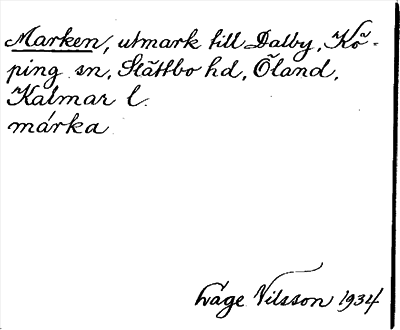 Marken, utmark till Dalby, Kö-
ping sn, Slättbo hd, Öland,
Kalmar l.
márka
Låge Nilsson 1934